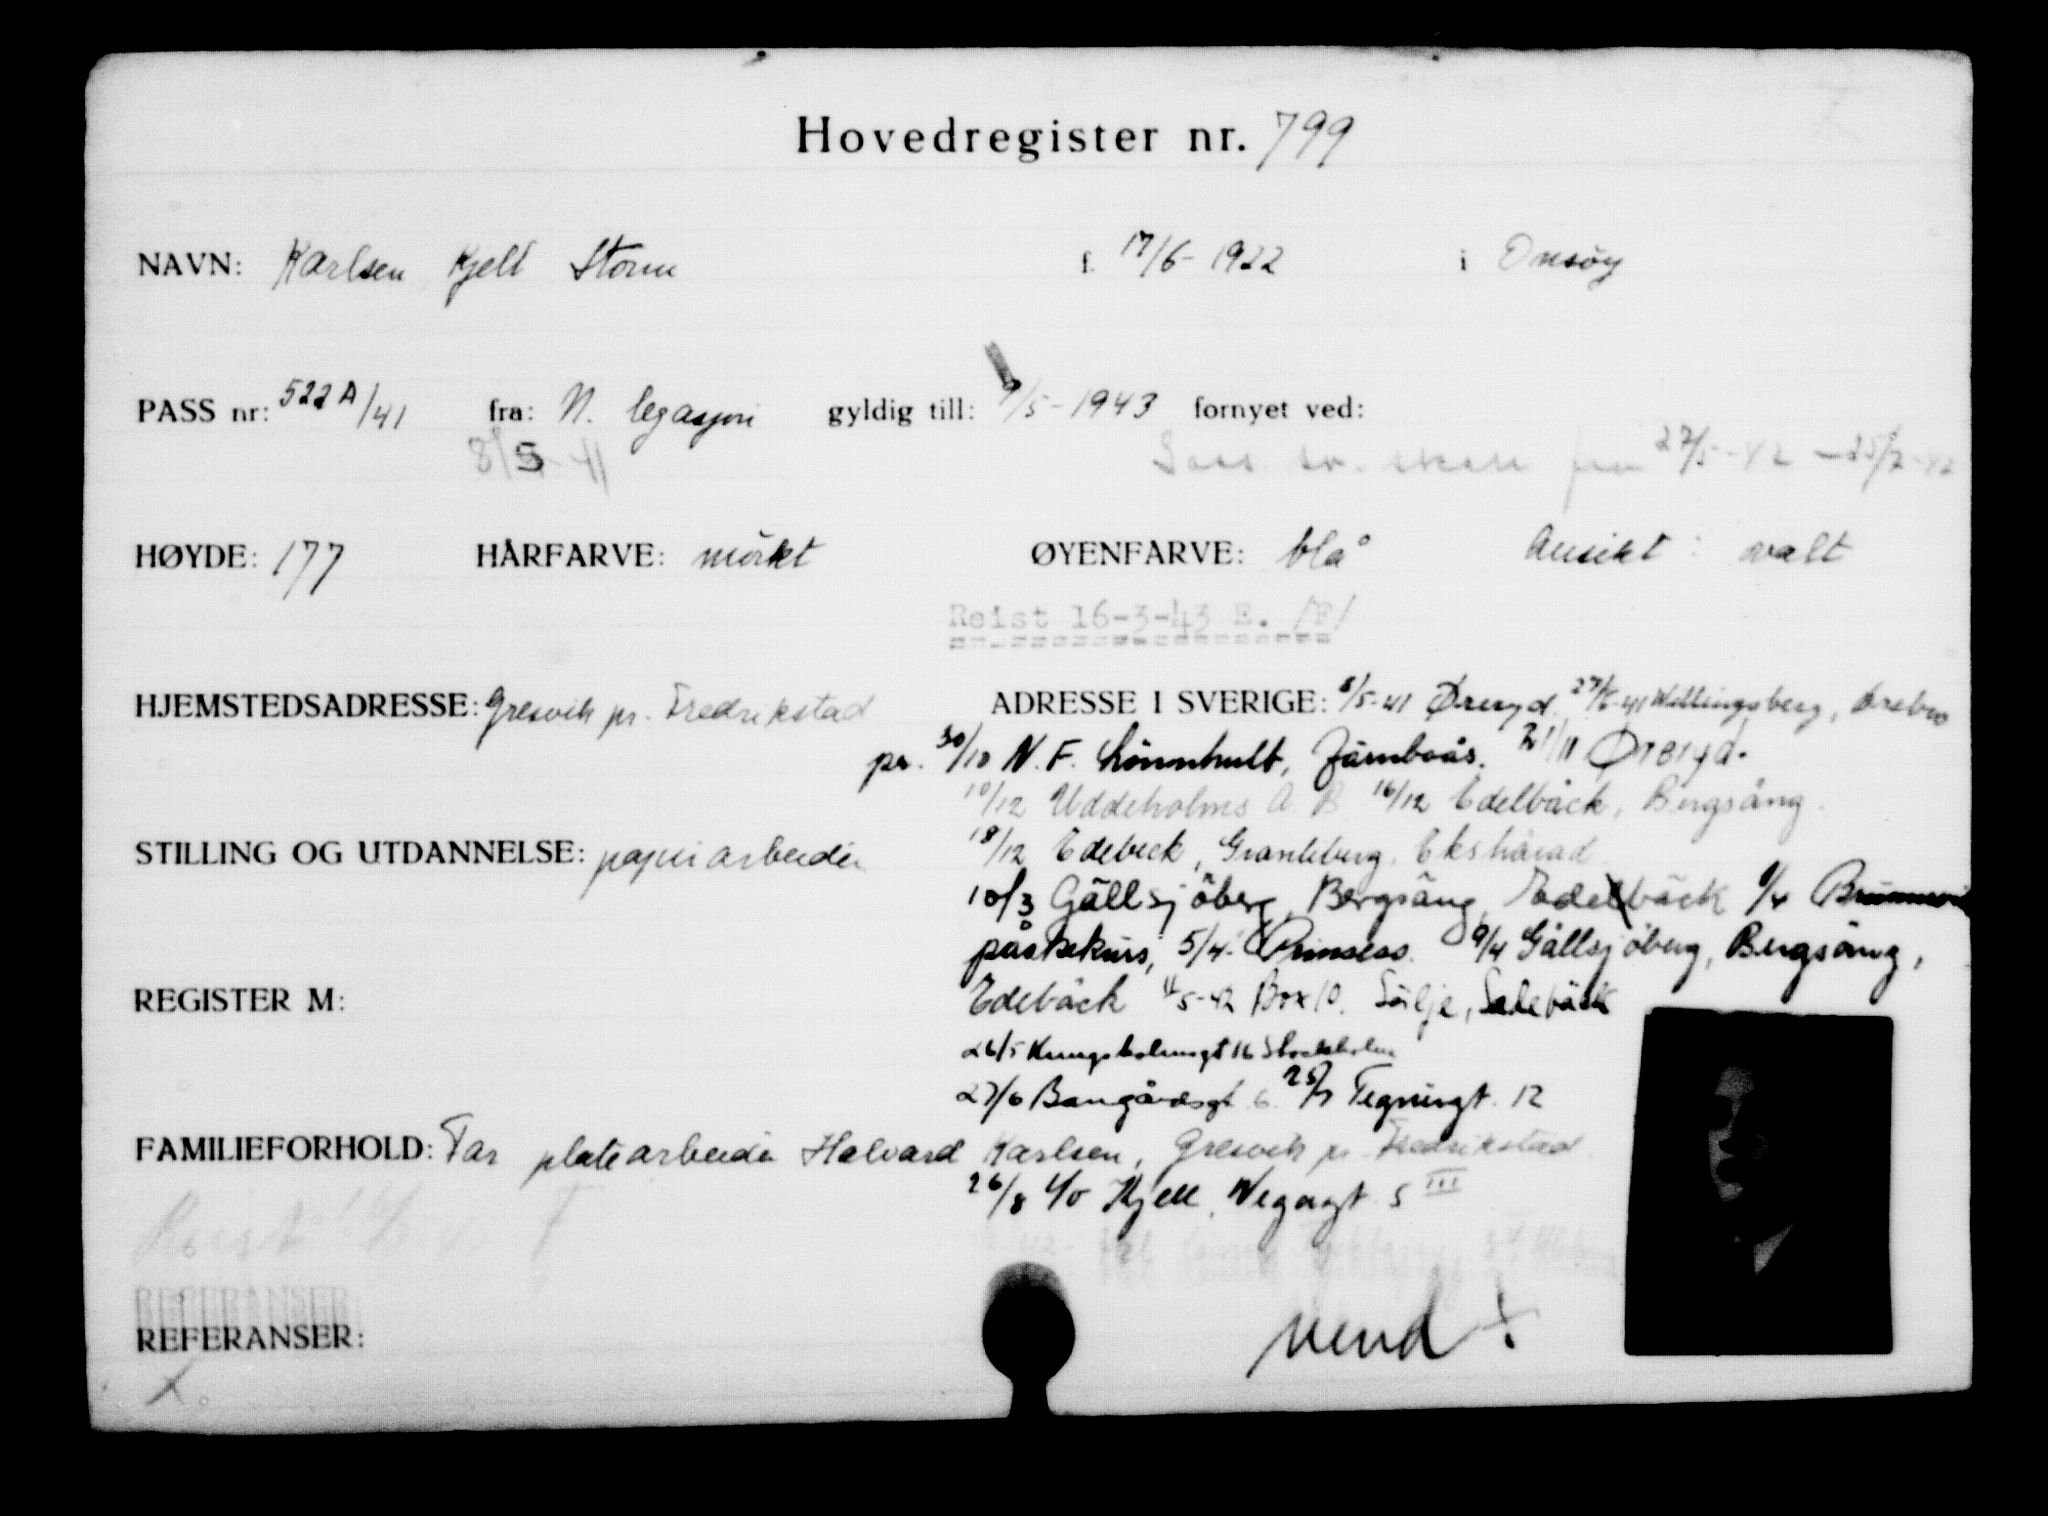 Hovedregister nr. 799
NAVN: Karlsen Kjell Storm f. 17/6-1922 i Onsöy
PASS nr: 522 A/41 fra: N. legasjon gyldig till: 9/5-1943 fornyet ved:
8/5-41 27/5-42 - 25/7-42
HØYDE: 177 HÅRFARVE: mörkt ØYENFARVE: blå Ansikt: ovalt
Reist 16-3-43 E. /F/
HJEMSTEDSADRESSE: Gresvik pr. Fredrikstad ADRESSE I SVERIGE: 8/5-41 Øreryd. 27/6-41 Willingsberg, Örebro
pr. 30/10 N.F. Lönnhult, Järnboås. 21/11 Øreryd.
10/12 Uddeholms A.B. 16/12 Edelbäck, Bergsäng.
STILLING OG UTDANNELSE: papirarbeider 18/12 Edebeck, Granleberg. Ekshärad
10/3 Gällsjöberg, Bergsäng, Edelbäck 1/4 Brunnsvik
påskekurs, 5/4. Prinsess. 9/4 Gällsjöberg, Bergsäng,
REGISTER M: Edebäck 4/5-42 Box 10. Sölje,
26/5 Kungsholmsgt 16 Stockholm
27/6 Bangårdsgt. 6. 25/7 Tegnérgt. 12
FAMILIEFORHOLD: Far platearbeider Halvard Karlsen, Gresvik pr. Fredrikstad
26/8 c/o Kjell, Wegagt. 5 III
Reist 16/3
REFERANSER
REFERANSER: vend +
X